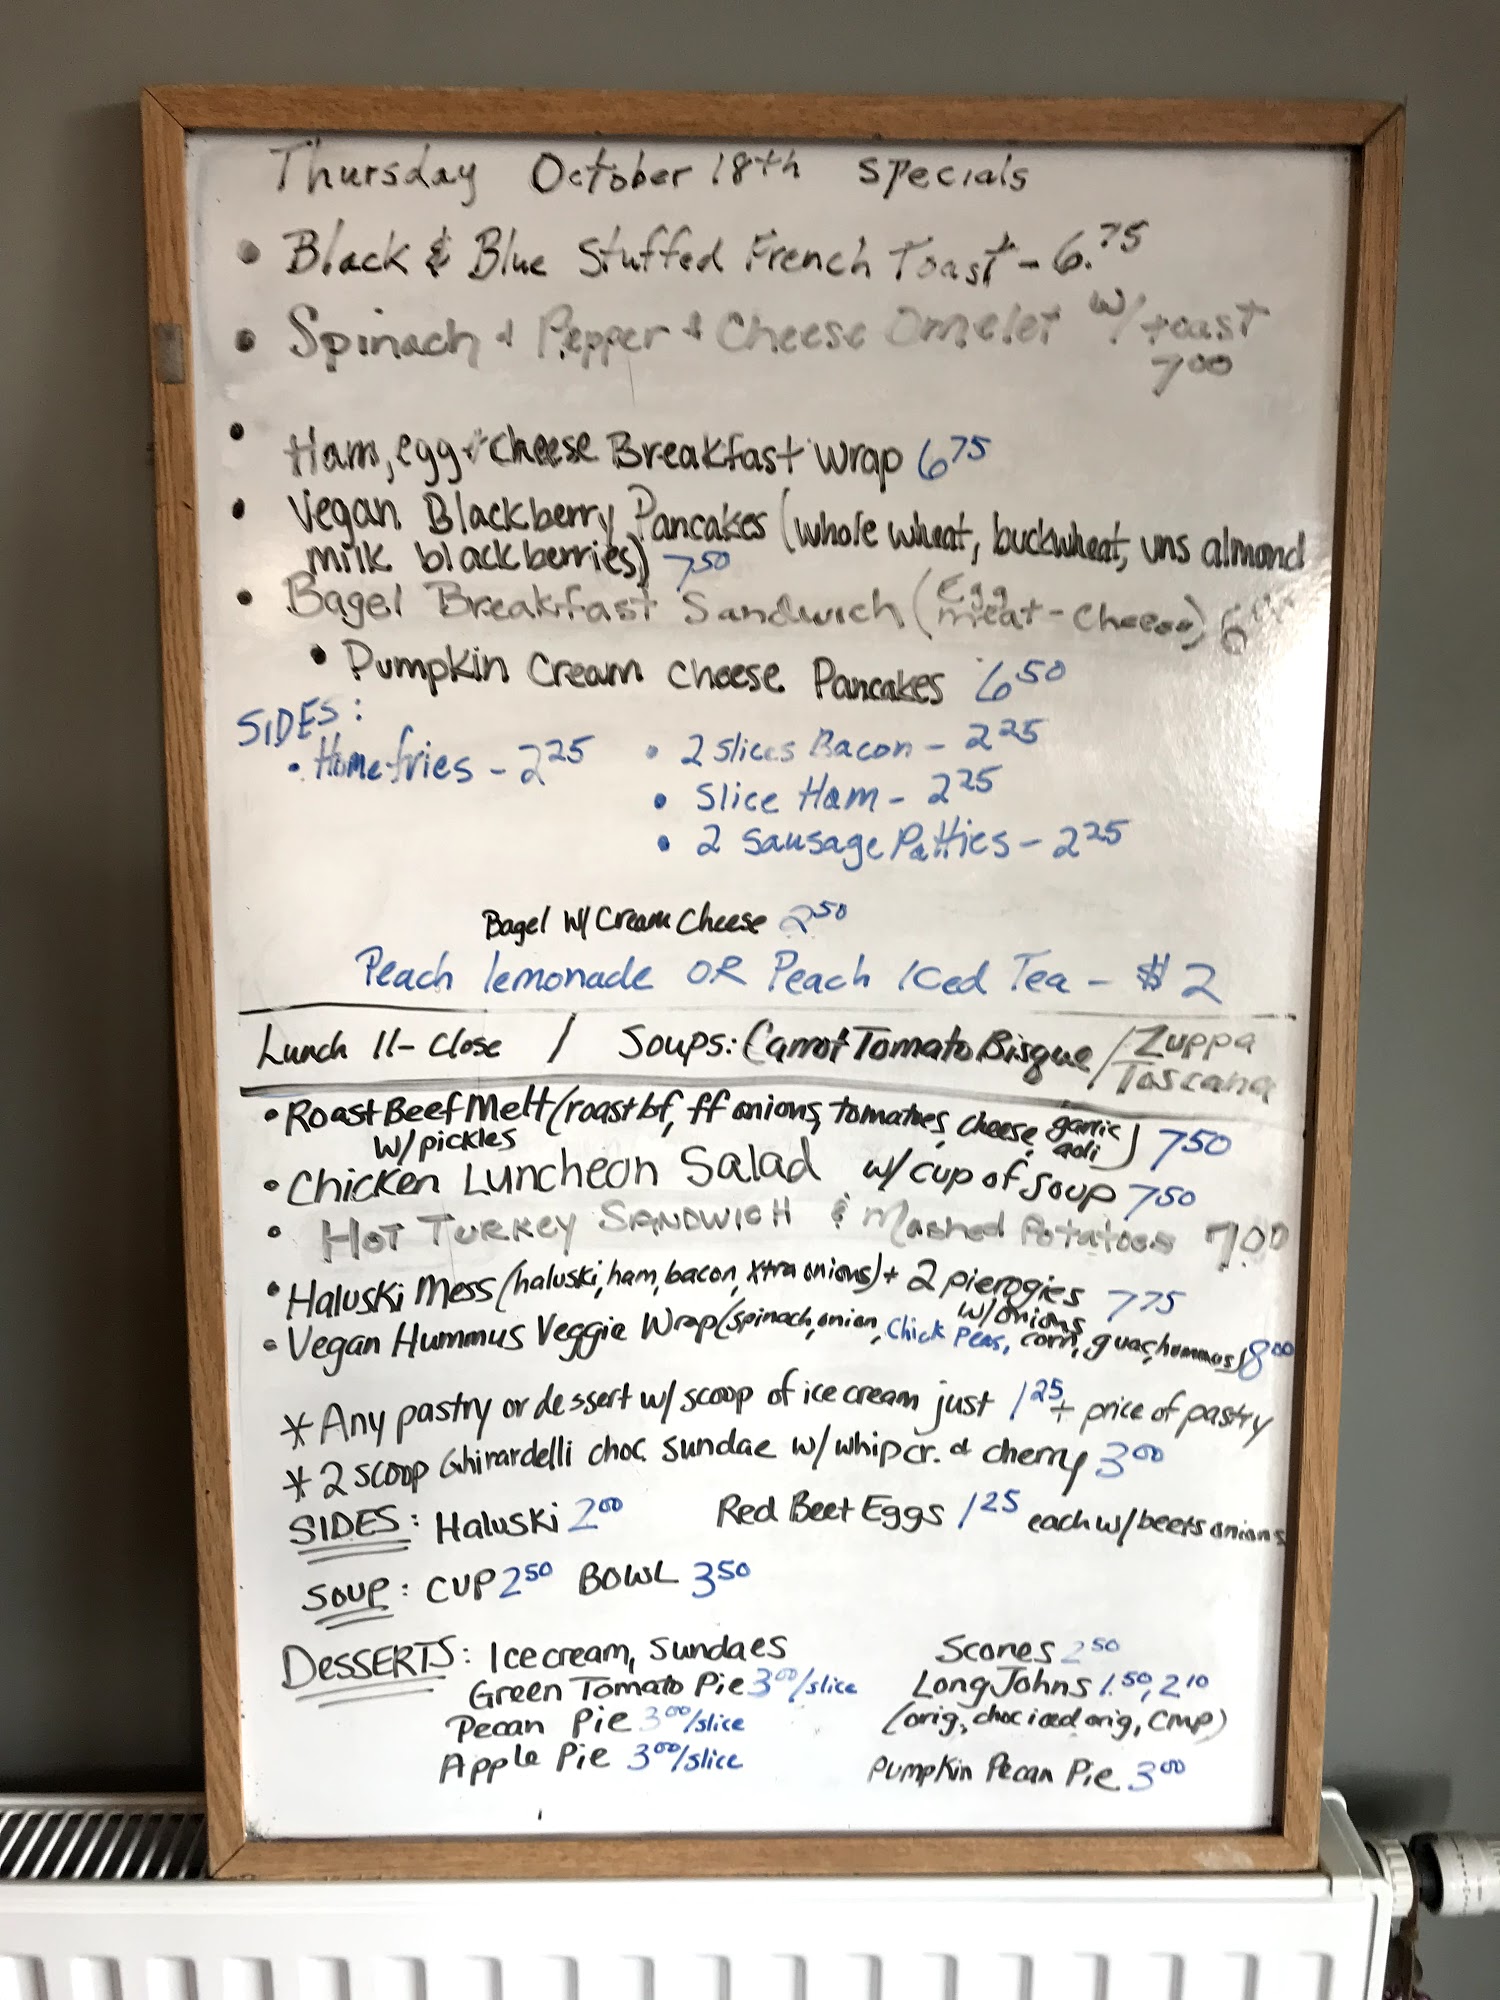 Thursday October 18th Specials
• Black & Blue Stuffed French Toast - 6.75
• Spinach + Pepper + Cheese Omelet w/ toast
700
• Ham, egg + cheese Breakfast Wrap 675
• Vegan Blackberry Pancakes (whole wheat, buckwheat, uns almond
milk blackberries) 750
• Bagel Breakfast Sandwich (Egg
meat - Cheese) 6
• Pumpkin Cream Cheese Pancakes 650
SIDES:
• Homefries - 225
• 2 slices Bacon - 225
• Slice Ham - 225
• 2 Sausage Patties - 225
Bagel w/ Cream Cheese 250
Peach lemonade OR Peach Iced Tea - $2
Lunch 11 - Close / Soups: Carrot Tomato Bisque / Zuppa
Toscana
• Roast Beef Melt (roast bf, ff onions, tomatoes, cheese, garlic
aoli) 750
w/ pickles
• Chicken Luncheon Salad w/ cup of soup 750
• HOT TURKEY SANDWICH & Mashed Potatoes 7.00
• Haluski Mess (haluski, ham, bacon, xtra onions) + 2 pierogies 775
w/ onions
• Vegan Hummus Veggie Wrap (spinach, onion, Chick Peas, corn, guac, hummus) 800
* Any pastry or dessert w/ scoop of ice cream just 125 + price of pastry
* 2 scoop Ghirardelli choc. sundae w/ whip cr. & cherry 300
SIDES: Haluski 200 Red Beet Eggs 125 each w/ beets onions
SOUP: CUP 250 BOWL 350
DESSERTS: Ice cream, Sundaes
Green Tomato Pie 300/slice
Pecan Pie 300/slice
Apple Pie 300/slice
Scones 250
Long Johns 1.50, 210
(orig, choc iced orig, CMP)
Pumpkin Pecan Pie 300